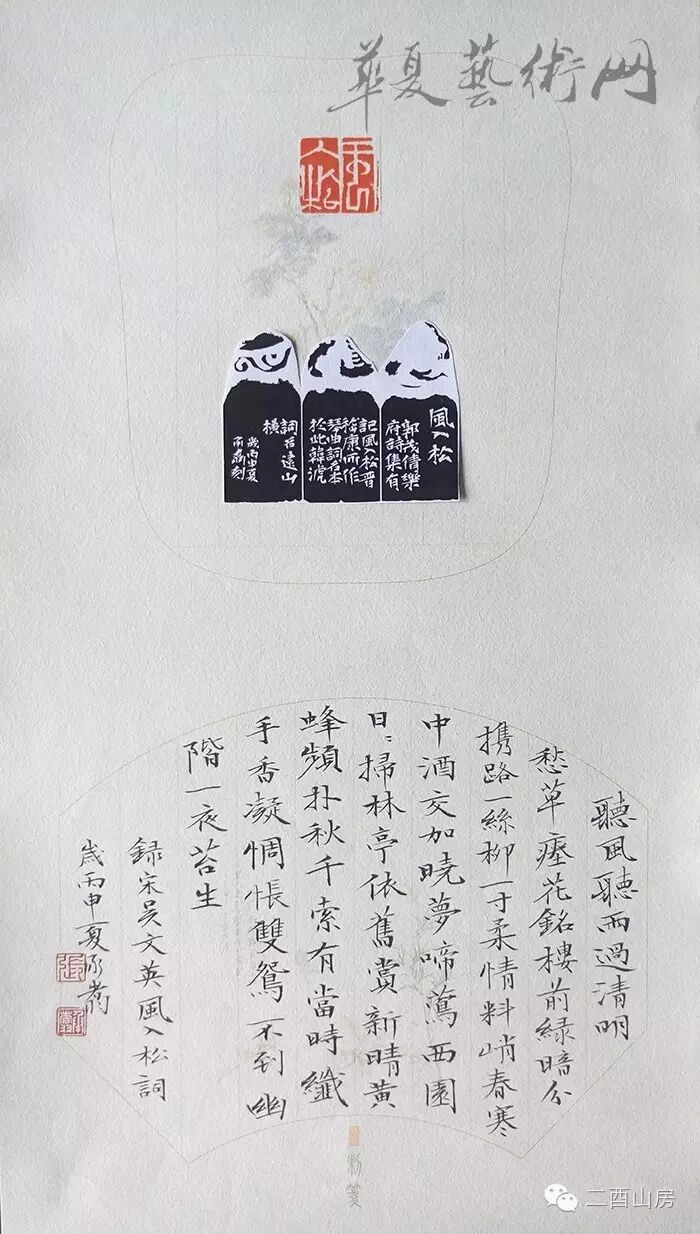 華夏藝術网
風入松
風入松
郭茂倩樂
府詩集有
記風入松晋
嵇康所作
琴曲詞名本
於此韓淲
詞若遠山
橫
歲丙申夏
聽風聽雨過清明
愁草瘞花銘樓前綠暗分
携路一絲柳一寸柔情料峭春寒
中酒交加曉夢啼鶯西園
日〻掃林亭依舊賞新晴黃
蜂頻扑秋千索有當時纖
手香凝惆悵雙鴛不到幽
階一夜苔生
録宋吳文英風入松詞
歲丙申夏
張
箋
二酉山房